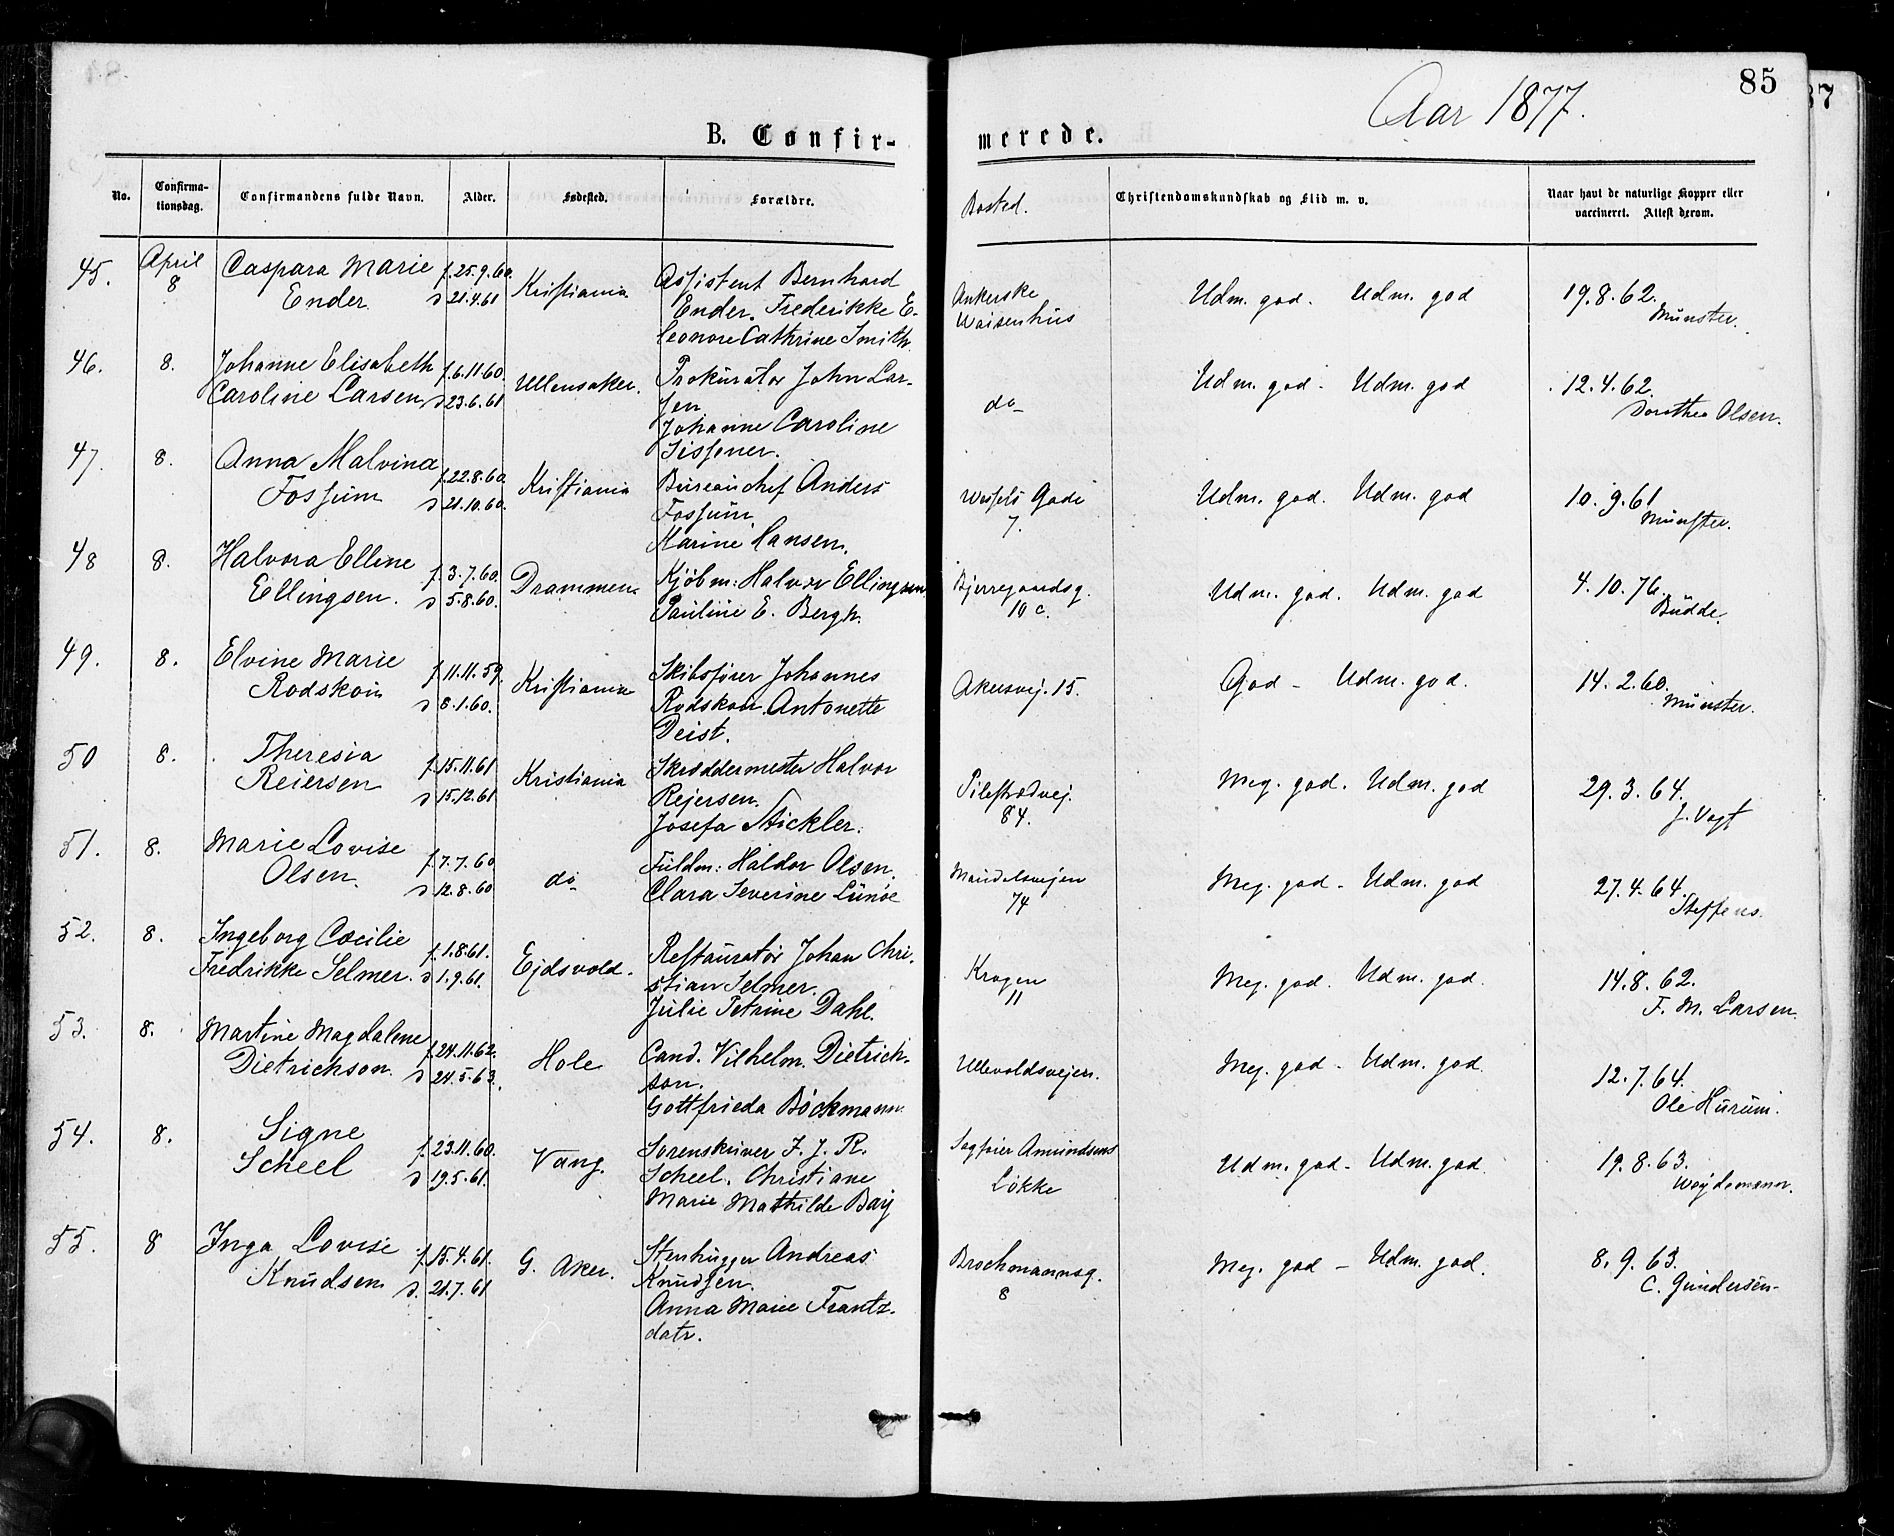 85
Aar 1877.
B. Confir-
merede.
No.
Confirma-
tionsdag.
Confirmandens fulde Navn.
Alder.
Fødested.
Forældre.
Bosted.
Christendomskundskab og Flid m. v.
Naar havt de naturlige Kopper eller
vaccineret. Attest derom.
45. April Caspara Marie f. 25.9.60. Kristiania Assistent Bernhard
8 Ender d 21.4.61 Ender. Frederikke E-
leonore Cathrine Smith.
Ankerske
Waisenhus
Udm. god. Udm. god
19.8.62.
Münster.
46. 8. Johanne Elisabeth f. 6.11.60. Ullensaker. Prokurator John Lar-
Caroline Larsen d 23.6.61 sen
Johanne Caroline
Sissener.
do
Udm. god. Udm. god
12.4.62.
Dorothea Olsen.
47. 8. Anna Malvina f. 22.8.60. Kristiania Bureauchef Anders
Fossum d 21.10.60. Fossum.
Karine Hansen.
Wessels Gade
7.
Udm. god. Udm. god
10.9.61
Münster.
48 8. Halvora Elline f. 3.7.60. Drammen Kjøbm: Halvor Ellingsen
Ellingsen. d 5.8.60. Pauline E. Bergh.
Bjerregaardsg.
10 c.
Udm. god. Udm. god
4.10.76.
Budde.
49. 8. Elvine Marie f. 11.11.59. Kristiania Skibsfører Johannes
Rodskow d 8.1.60. Rodskow. Antonette
Deist.
Akersvej. 15.
God - Udm. god.
14.2.60.
Münster.
50 8. Theresia f. 15.11.61 Kristiania Skræddermester Halvor
Reiersen d 15.12.61 Rejersen.
Josefa Stickler.
Pilestrædvej.
84.
Meg. god. Udm. god
29.3.64.
J. Vogt
51. 8. Marie Lovise f. 7.7.60 do Fuldm: Haldor Olsen.
Olsen. d 12.8.60 Clara Severine Lunøe
Maridalsvejen
74
Meg. god - Udm. god
27.4.64.
Steffens.
52. 8. Ingeborg Cæcilie f. 1.8.61. Ejdsvold. Restauratør Johan Chri-
Fredrikke Selmer. d 1.9.61. stian Selmer.
Julie Petrine Dahl.
Krogen
11
Meg. god. Udm. god.
14.8.62.
F. M. Larsen.
53. 8. Martine Magdalene f. 24.11.62. Hole Cand. Vilhelm Dietrich-
Dietrichson. d 24.5.63. son.
Gottfrieda Böckmann
Ullevoldsvejen.
Meg. god - Udm. god.
12.7.64.
Ole Hurum.
54. 8. Signe f. 23.11.60. Vang. Sorenskriver F. J. R.
Scheel d 19.5.61. Scheel. Christiane
Marie Mathilde Bay
Sagfører Amundsens
Løkke
Udm. god - Udm. god.
19.8.63.
Weydemann.
55. 8 Inga Lovise f. 15.4.61. G. Aker. Stenhugger Andreas
Knudsen d. 21.7.61 Knudsen.
Anna Marie Frantz-
datr.
Brochmannsg.
8
Meg. god - Udm. god.
8.9.63.
C. Gundersen-